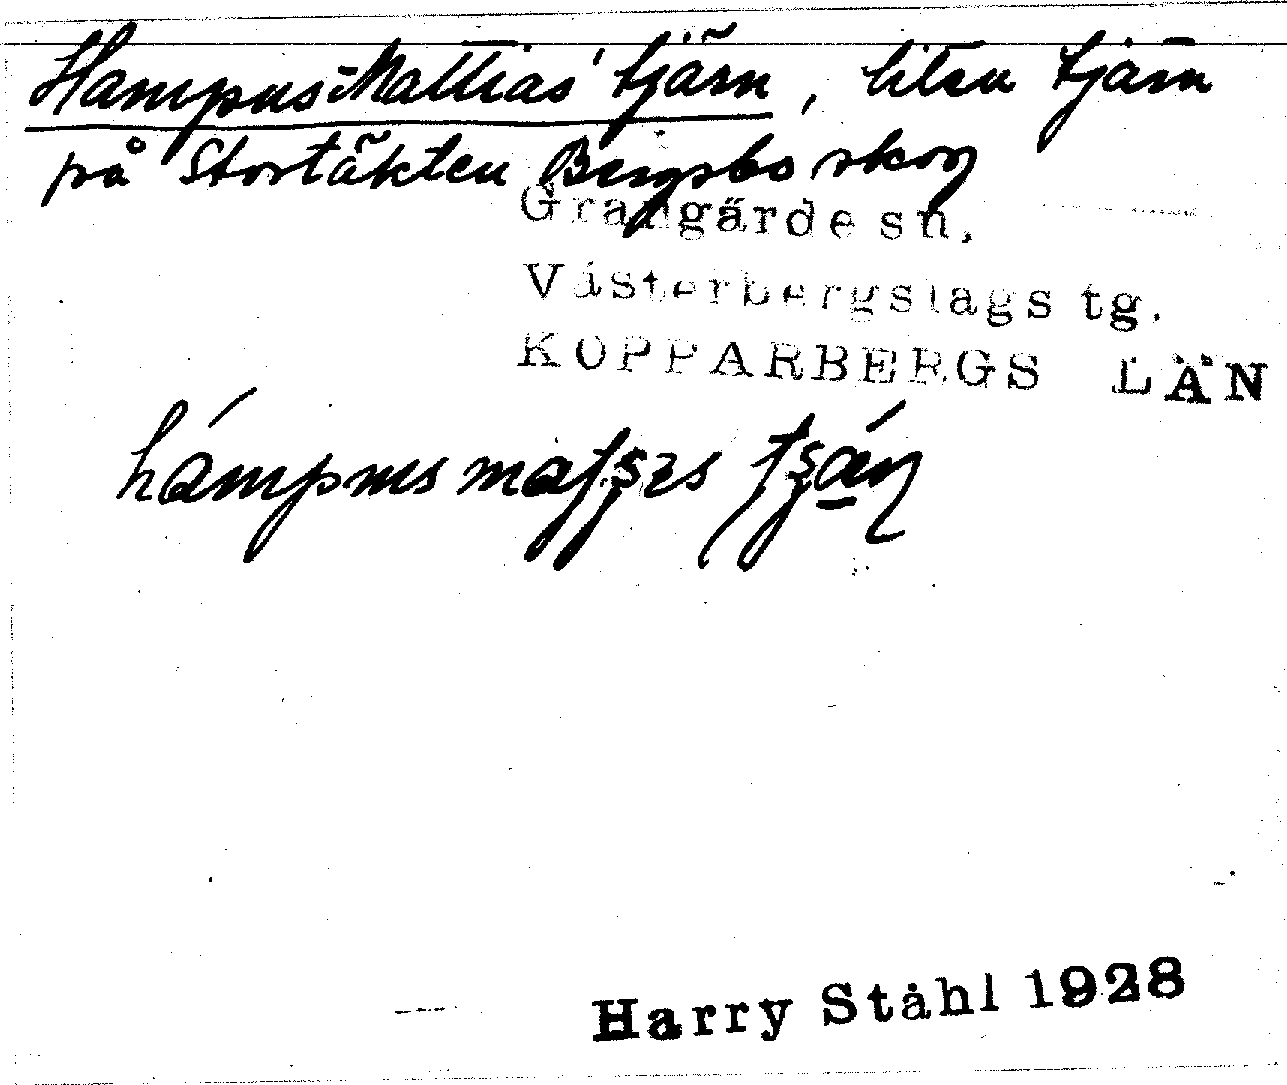 Hampus-Mattias' tjärn, liten tjärn
på Stortäkten Bergsbo skog
Grangärde sn.
Västerbergslags tg.
KOPPARBERGS LÄN
hámpus
Harry Ståhl 1928